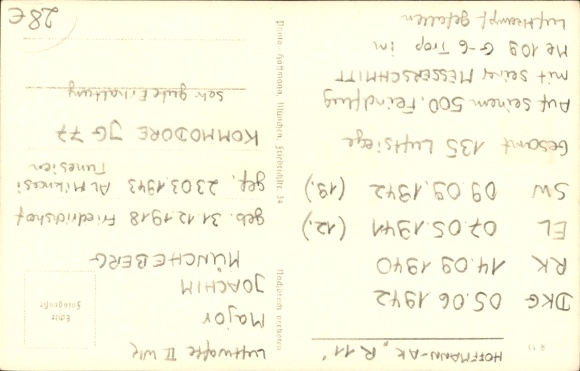 R 11
HOFFMANN-AK „R 11"
DKG 05.06.1942
RK 14.09.1940
EL 07.05.1941 (12.)
SW 09.09.1942 (19.)
Gesamt 135 Luftsiege
Auf seinem 500. Feindflug
mit seiner MESSERSCHMITT
Me 109 G-6 Trop im
Luftkampf gefallen
Photo Hoffmann, München, Friedrichstr. 34
Nachdruck verboten
Luftwaffe II WK
Major
JOACHIM
MÜNCHEBERG
Echte
Fotografie
geb. 31.12.1918 Friedrichshof
gef. 23.03.1943 Al Miknasi
Tunesien
KOMMODORE JG 77
sehr gute Erhaltung
28€